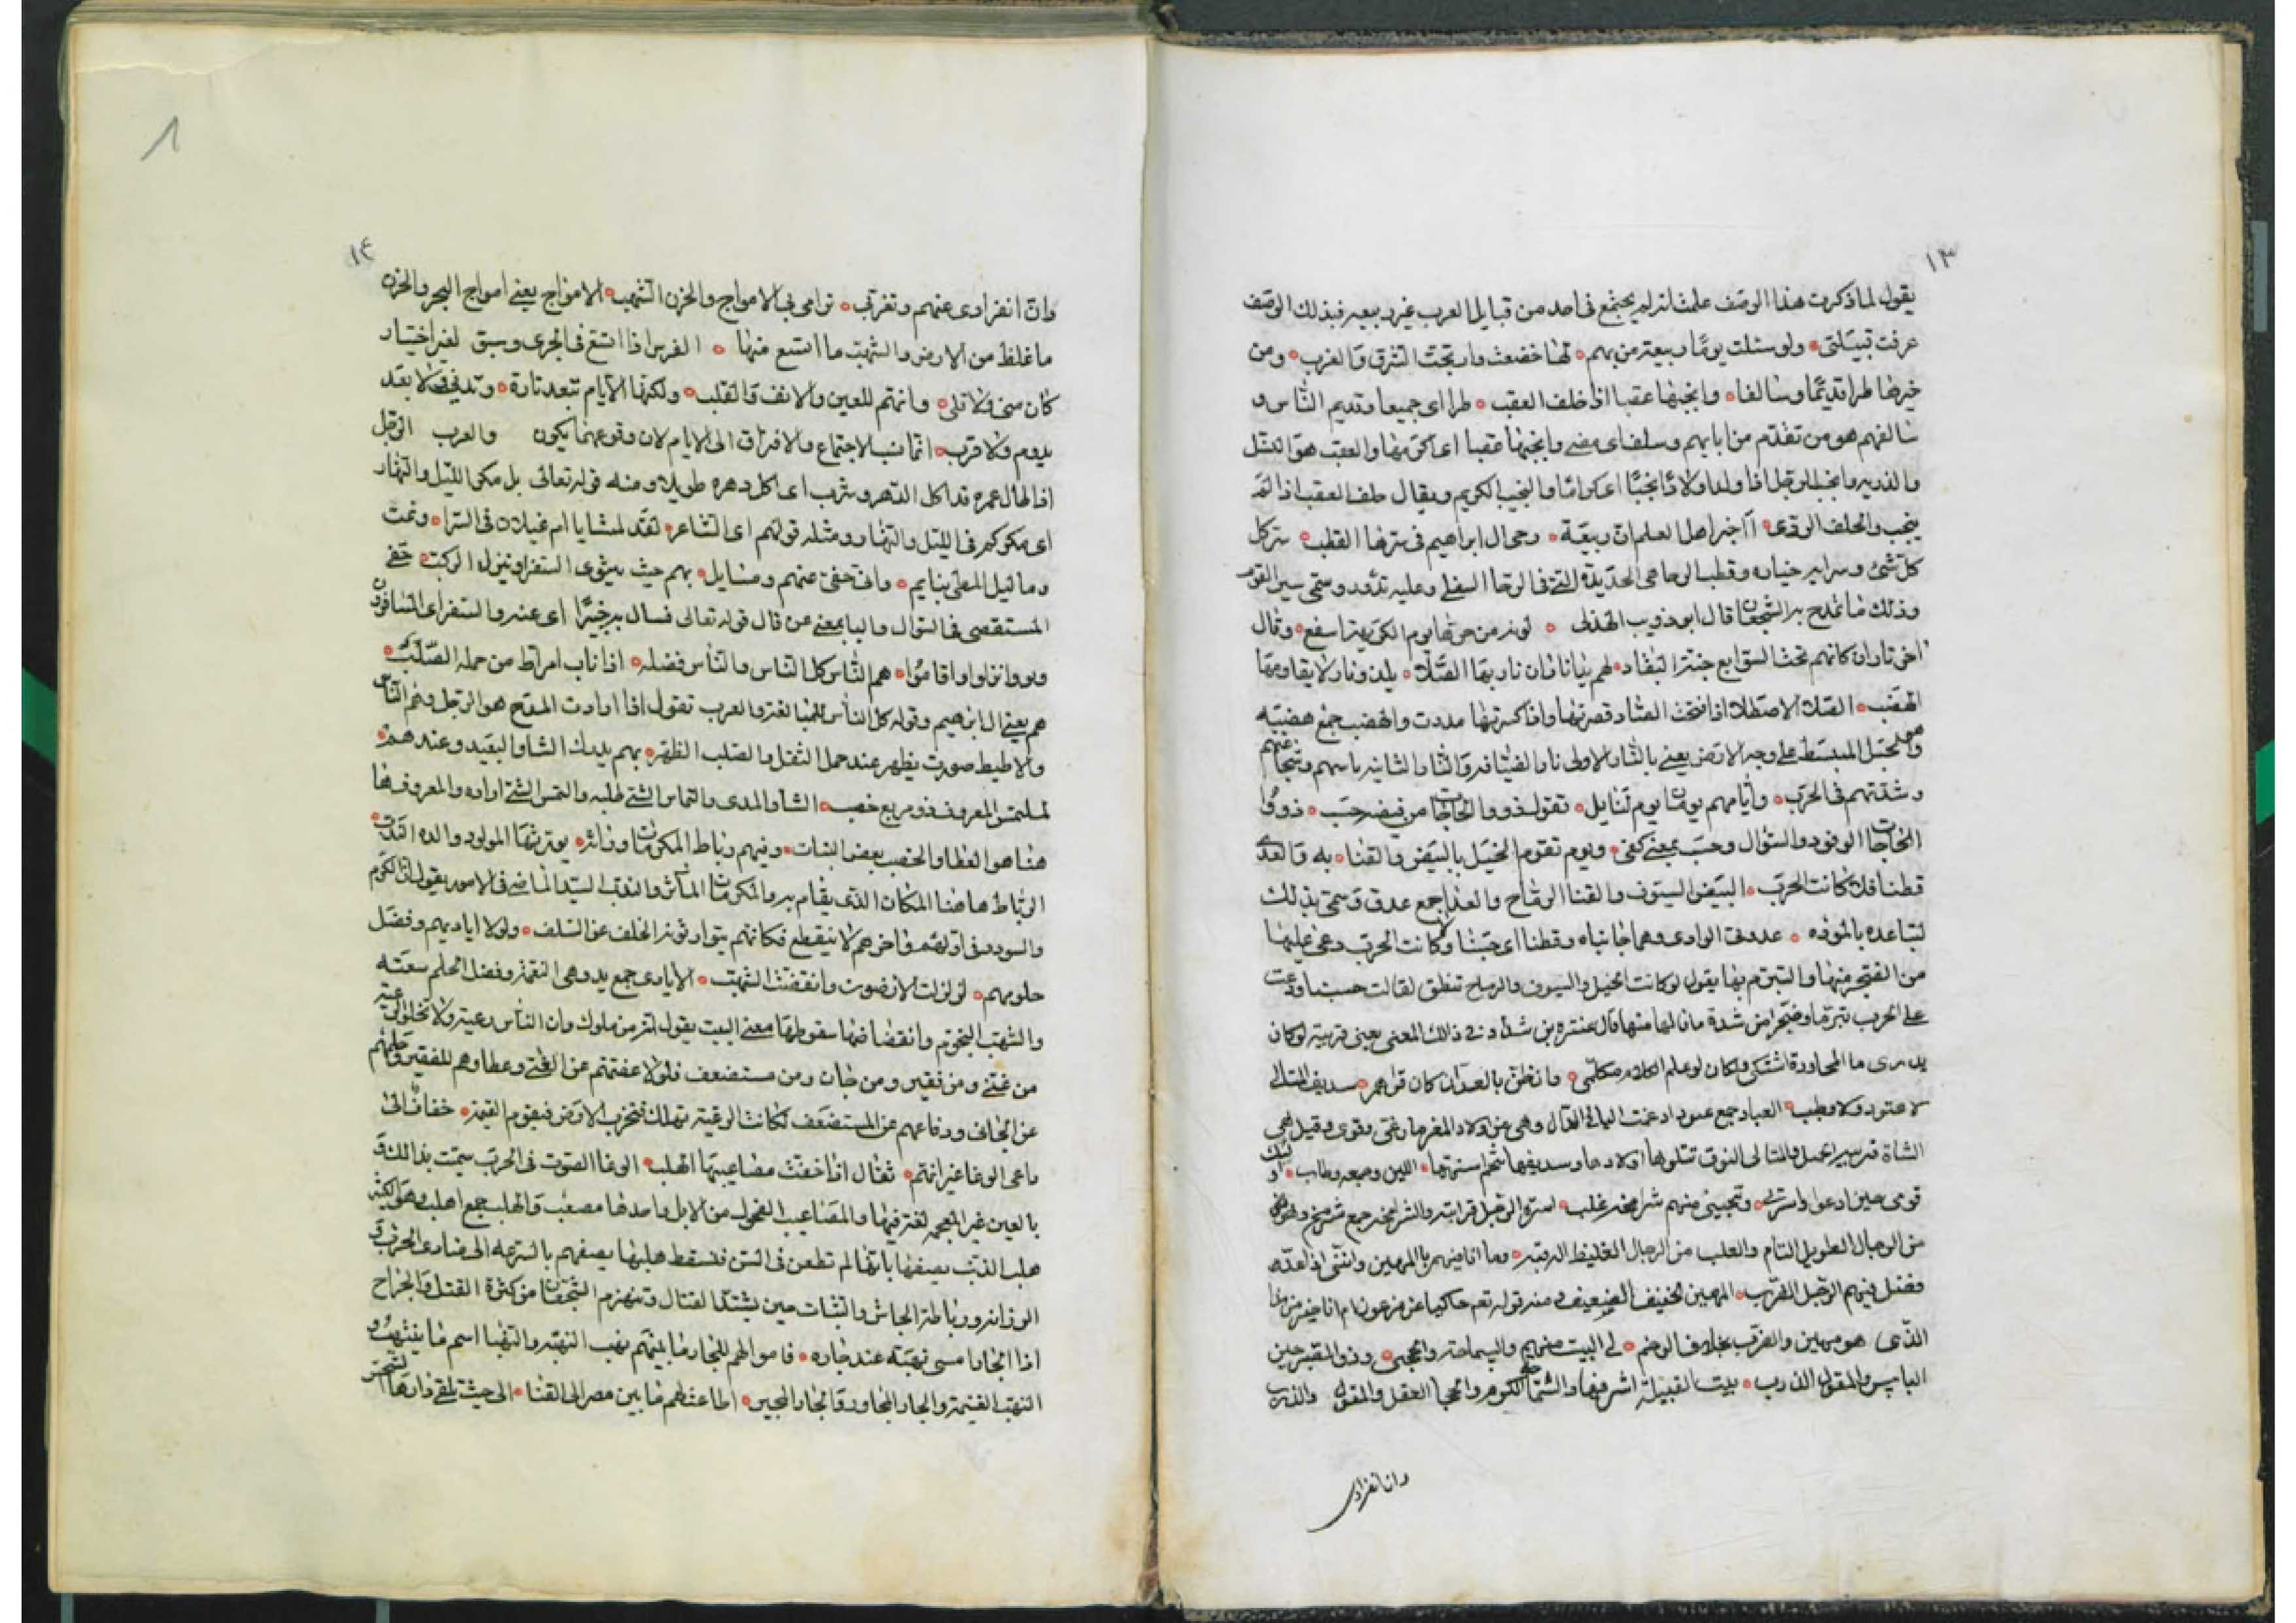 ١٣
يقول لما ذكرت هذا الوصف علمت انه لم يجتمع في احد من قبايل العرب غير ربيعه فبذلك الوصف
عرفت قبيلتي ولو سئلت يومًا ربيعة من بهم لها خضعت وارتجت الشرق والغرب ومن
خيرها طرا قديمًا وسالفا وانجبها عقبا اذا خلف العقب طرا اي جميعا وقديم الناس و
سالفهم هو من تقدم من ابايهم وسلف اي مضى وانجبها عقبا اي اكرمها والعقب هو النسل
والذريه وانجب الرجل اذا ولد اولادًا نجبًا اي كرامًا والنجيب الكريم ويقال خلف العقب اذا لم
ينجب والخلف الردي اخبر اهل العلم ان ربيعة وحي ال ابراهيم في سرها القطب سر كل
كل شئ وسراير خياره وقطب الرحا هي الحديدة التي في الرحا السفلى وعليه تدور وسمي سير القوم
وذلك مما تمدح به الشجعان قال ابو ذويب الهذلي من حرها يوم الكريهة اسفع وقال
اخر ناران كانهم تحت السوابغ جنة البقار لهم نارا نار بها الصلا يلذ ونار لا يقاومها
الهضب الصلا الاصطلا اذا فتحت الصاد قصرتها واذا كسرتها مددت والهضب جمع هضبة
وهو الجبل المنبسط على وجه الارض يعني بالنار الاولى نار الضيافة والنار الثانية باسهم وشجاعتهم
وشدتهم في الحرب وايامهم يومان يوم لنايل تقول ذوو الحاجات من فيضه حسب ذووا
الحاجات الوفود والسؤال وحسب بمعنى كفى ويوم تقوم الخيل بالبيض والقنا به والعدى
قطنا فلا كانت الحرب البيض السيوف والقنا الرماح والعدا جمع عدو وسمي بذلك
لتباعده بالموده عدوتى الوادي وهما جانباه وقطنا اي حسبنا ولا كانت الحرب دعى عليها
من الضجر منها والتبرم بها يقول لو كانت الخيل والسيوف والرماح تنطق لقالت حسبنا ودعت
على الحرب تبرمًا وضجرًا من شدة ما نالها منها قال عنترة بن شداد في ذلك المعنى يعني فرسه لو كان
يدري ما المحاورة اشتكى ولكان لو علم الكلام مكلمي وان نطق بالعد ان كان قراهم سديف المتالي
لا عتود ولا وطب
الشاة والمتالي النوق تتلوها اولادها وسديفها شحم اسنمتها اللبن وجمعه وطاب
قومي حين ادعوا واسرتي وتجيبني منهم شرامخة غلب اسرة الرجل قرابته والشرامخة جمع شرمخ وهو
من الرجال الطويل التام والغلب من الرجال الغليظ الرقبه وما انا فيهم بالمهين وانني اذا عد
فضل فيهم الرجل الضرب المهين الخفيف الضعيف ومنه قوله تع حاكيا عن فرعون ام انا خير من هذا
الذي هو مهين والضرب بخلاف الوخم لي البيت منهم والسماحة والحجى وذو الفقير حين
الباس والمقول الذرب بيت القبيلة اشرفها والسماحة الكرم والحجا العقل والمقول والذرب
وان انفرادي
١٤
وان انفرادي عنهم وتغربي ترامى بي الامواج والحزن السهب الامواج يعني امواج البحر والحزن
ما غلظ من الارض والسهب ما اتسع منها الفرس اذا اتسع في الجري وسبق لغير اختيار
كان مني ولا قلى وانهم للعين والانف والقلب ولكنها الايام تبعد تارة وتدني فلا بعد
يدوم ولا قرب انما نسب الاجتماع والافتراق الى الايام لان وقوعهما يكون والعرب الرجل
اذا طال عمره قد اكل الدهر وشرب اي اكل دهره طويلا ومنه قوله تعالى بل مكر الليل والنهار
اي مكركم في الليل والنهار ومثله قولهم اي الشاعر لقد لمتنا يا ام غيلان في السرا ونمت
وما ليل المطي بنايم واني حفي عنهم ومسايل بهم حيث يثوى السفر او ينزل الركب حفي
المستقصي في السوال والبا بمعنى عن قال قوله تعالى فسال به خبيرًا اي عنه والسفر اي المسافرون
ويروا نزلوا واقاموا هم الناس كل الناس والناس فضله اذا ناب امر اط من حمله الصلب
هم يعني ال ابرهيم وقوله كل الناس للمبالغة والعرب تقول اذا ارادت المدح هو الرجل وهم الناس
والاطيط صوت يظهر عند حمل الثقل والصلب الظهر بهم يدرك الشاو البعيد وعندهم
لملتمس المعروف ذو مربع خصب الشاو المدى والتماس الشئ طلبه والتمس الشئ اراده والمعروف ها
هنا هو العطا والخصب بعض النبات وفيهم رباط المكرمات وراثة يورثها المولود والده الندب
الرباط هاهنا المكان الذي يقام به والمكرمات المآثر والندب السيد الماضي في الامور يقول ان الكرم
والسودد في اولهم واخرهم لا ينقطع فكانهم يتوارثونه الخلف عن السلف ولولا اياديهم وفضل
حلومهم لزلزلت الارضون وانقضت الشهب الايادي جمع يد وهي النعمة وفضل الحلم سعته
والشهب النجوم وانقضاضها سقوطها معنى البيت يقول انهم من ملوك وان الناس رعية ولا تخلوا الرعية
من غني ومن فقير ومن جان ومن مستضعف فلولا عفتهم عن الغني وعطاوهم للفقير وحلمهم
عن الجاني ودفاعهم عن المستضعف لكانت الرعية تهلك فتخرب الارض فيقوم القيمة خفاف الى
داعي الوغا غير انهم ثقال اذا خفت مصاعيبها الهلب الوغا الصوت في الحرب سميت بذلك و
بالعين غير المعجمه لغة فيها والمصاعيب الفحول من الابل واحدها مصعب والهلب جمع اهلب وهو الكثير
هلب الذنب يصفها بانها لم تطعن في السن فسقط هلبها يصفهم بالسرعه الى منادي الحرب و
الرزانه ورباطة الجاش والثبات حين يشتد القتال وتنهزم الشجعان من كثرة القتل والجراح
اذا الجار امسى نهبة عند جاره فاموالهم للجار ما بينهم نهب النهبه والنهبا اسم ما ينتهب و
النهب الغنيمة والجار المجاور والجار المجير اطاعتهم ما بين مصر الى القنا الى حيث تلقى دارها الشحر